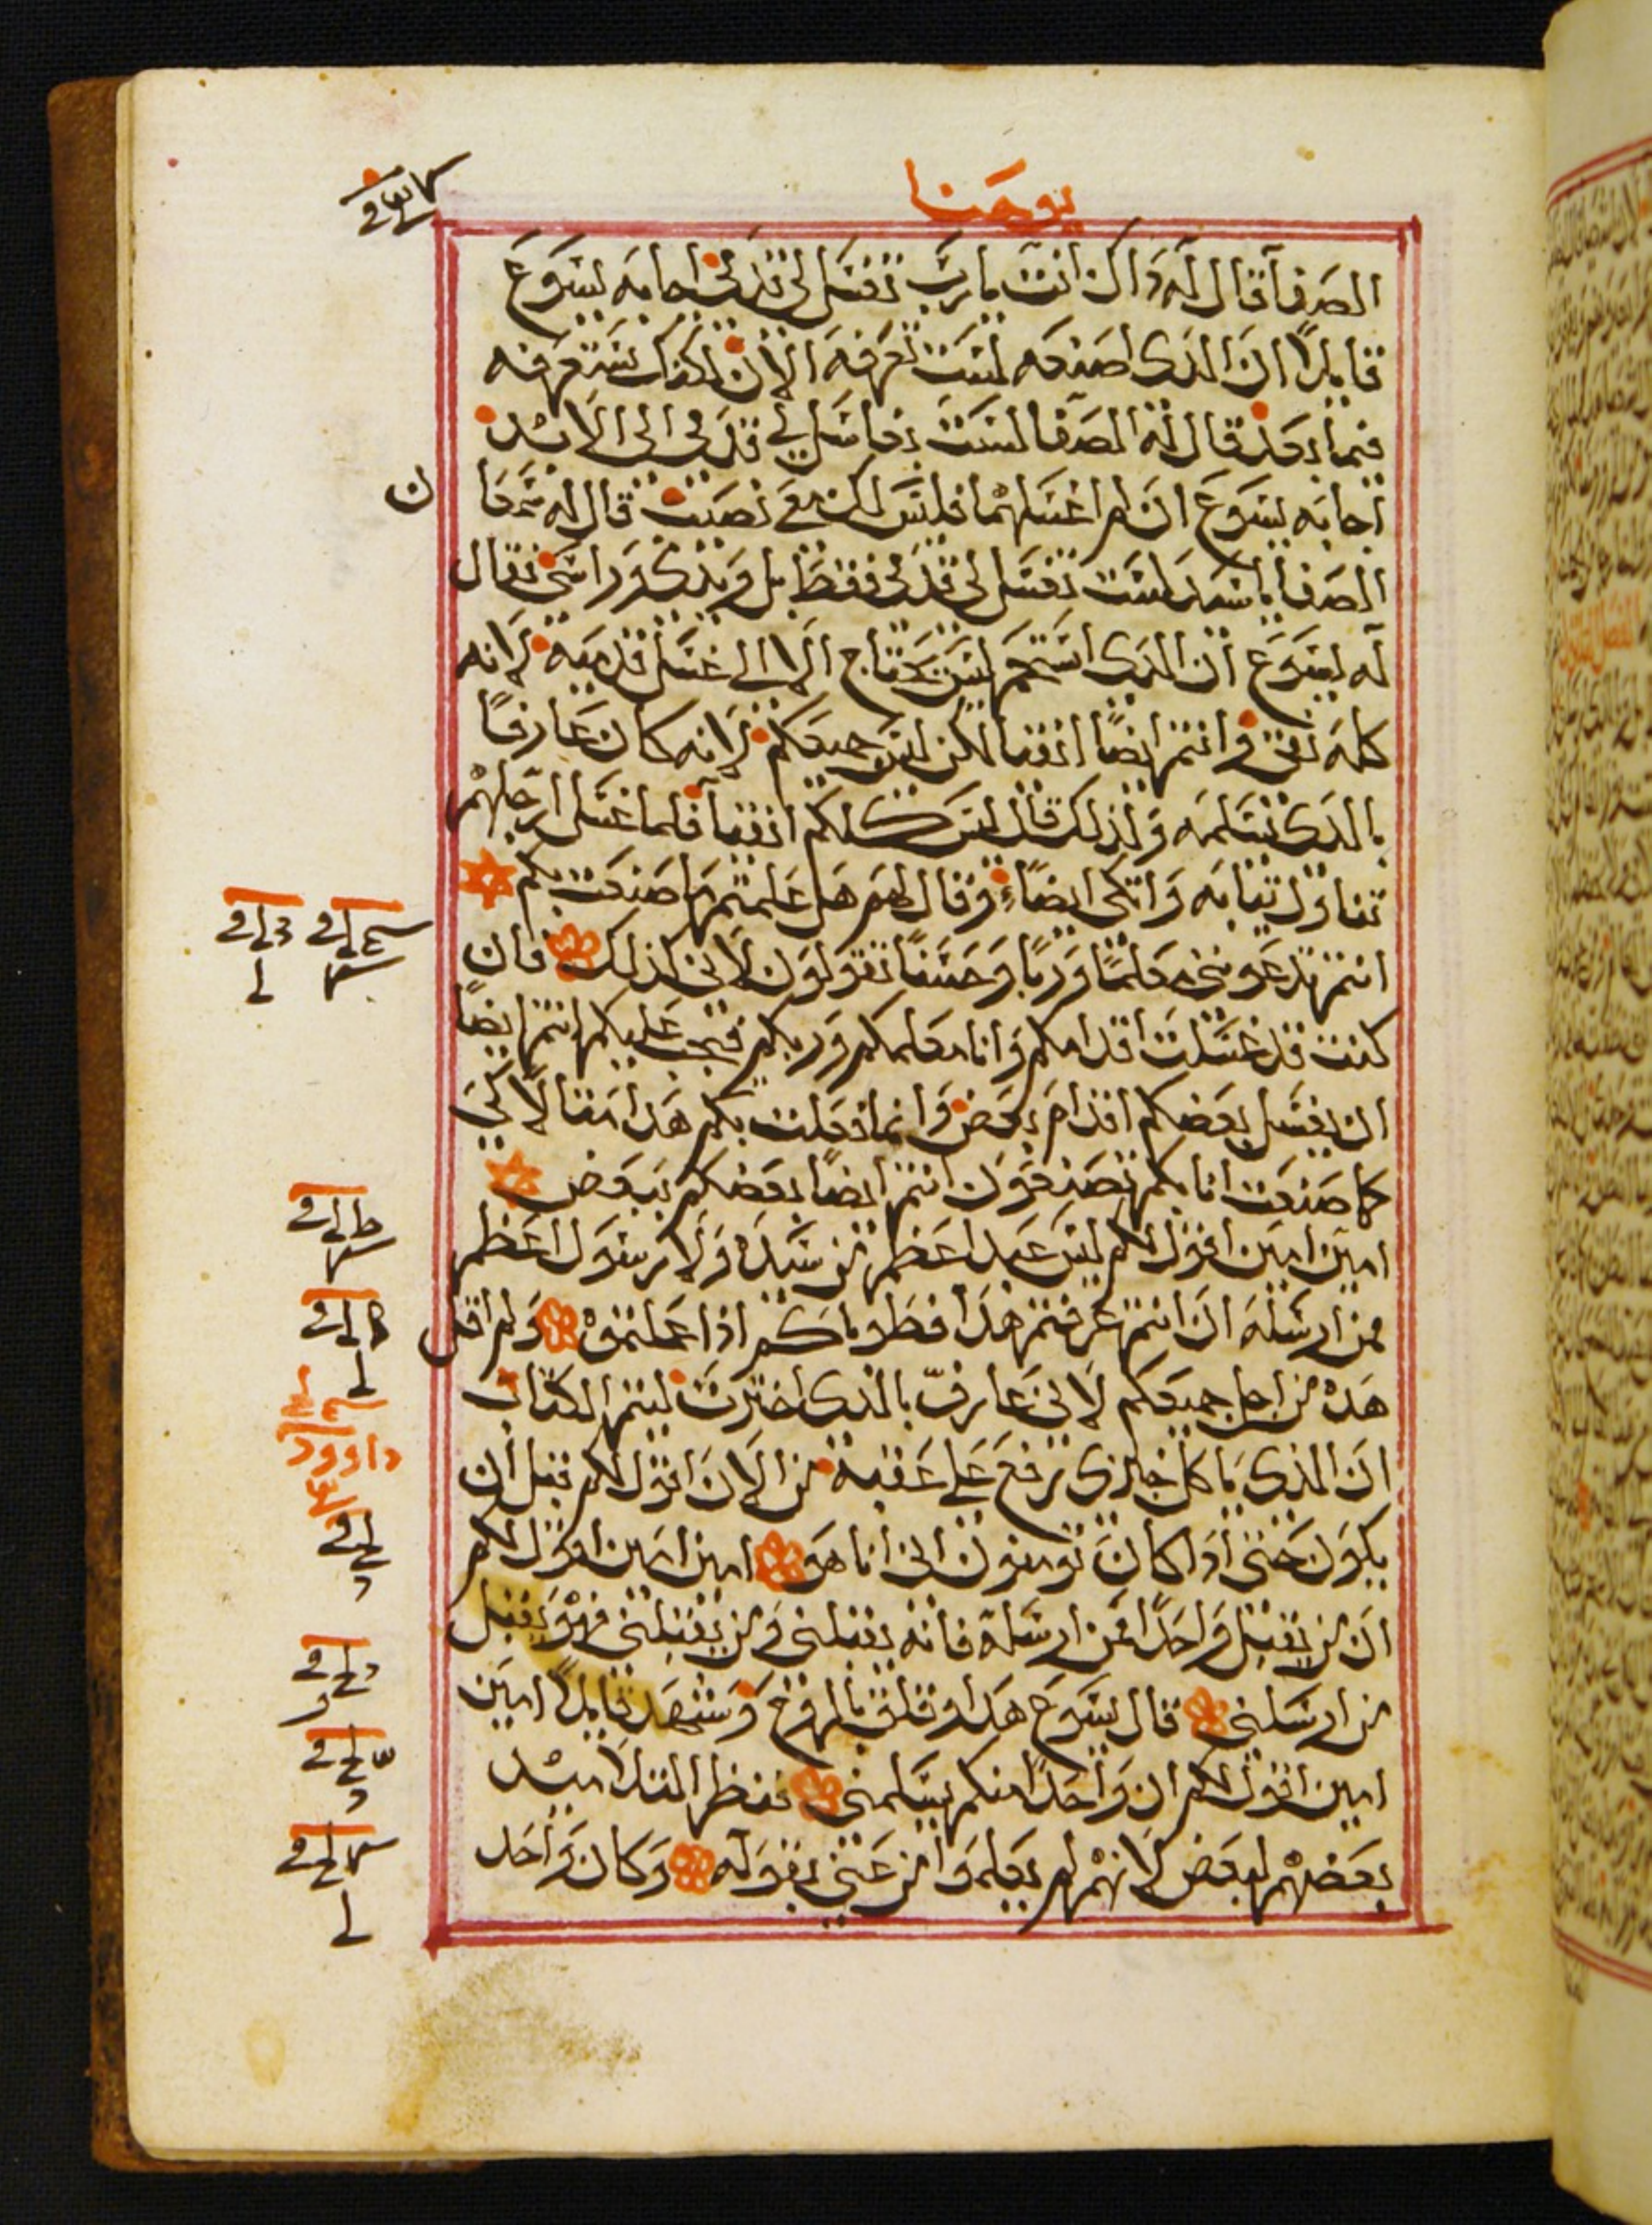 يوحنا
الصفا قال له ذاك انت يا رب تغسل لي قدمي اجابه يسوع
قايلاً ان الذي اصنعه لست تعرفه الان لكنك ستعرفه
فيما بعد قال له الصفا لست بغاسل لي قدمي الى الابد
اجابه يسوع ان لم اغسلهما فليس لك معي نصيب قال له شمعا
ن
الصفا يا سيد لست تغسل لي قدمي فقط بل ويدي وراسي فقال
له يسوع ان الذي استحم ليس يحتاج الا الى غسل قدميه لانه
كله نقي وانتم ايضاً انقيا لكن ليس جميعكم لانه كان عارفاً
بالذي يسلمه ولذلك قال ليس كلكم انقيا فلما غسل ارجلهم
تناول ثيابه واتكى ايضاً وقال لهم هل علمتم ما صنعت بكم
انتم تدعونني معلماً ورباً وحسناً تقولون لاني كذلك فان
كنت قد غسلت اقدامكم وانا معلمكم وربكم فيجب عليكم انتم ايضاً
ان يغسل بعضكم اقدام بعض وانما فعلت بكم هذا مثالاً لكي
كما صنعت انا بكم تصنعون انتم ايضاً بعضكم ببعض
امين امين اقول لكم ليس عبد اعظم من سيده ولا رسول اعظم
ممن ارسله ان انتم عرفتم هذا فطوباكم اذا عملتموه ولم اقل
هذه من اجل جميعكم لاني عارف بالذي اخترت ليتم الكتاب
ان الذي ياكل خبزي رفع علي عقبه من الان اقول لكم قبل ان
يكون حتى اذا كان تومنون اني انا هو امين امين اقول لكم
ان من يقبل واحداً ممن ارسله فانه يقبلني ومن يقبلني فهو يقبل
من ارسلني قال يسوع هذا وقلق بالروح وشهد قايلاً امين
امين اقول لكم ان واحداً منكم يسلمني فنظر التلاميذ
بعضهم لبعض لانهم لم يعلموا من عنى بقوله وكان واحد
داوود